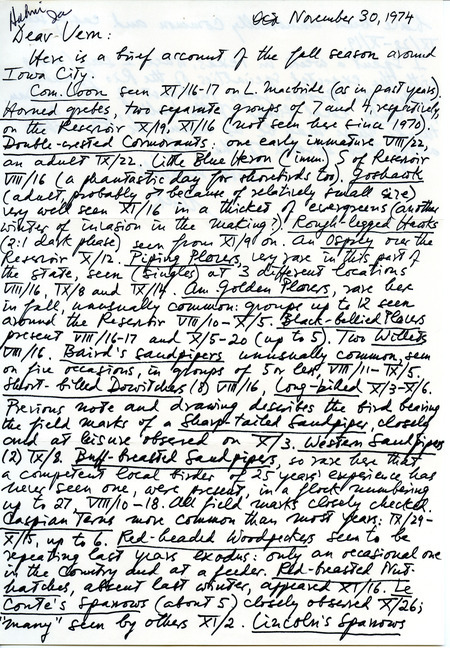 November 30, 1974
Dear Vern:
Here is a brief account of the fall season around
Iowa City.
Com. Loon seen XI/16-17 on L. Macbride (as in past years).
Horned grebes, two separate groups of 7 and 4, respectively,
on the Reservoir X/19, XI/16 (not seen here since 1970).
Double-crested Cormorants: one early immature VIII/22,
an adult IX/22. Little Blue Heron (imm.) S of Reservoir
VIII/16 (a phantastic day for shorebirds too). Goshawk
(adult, probably ♂ because of relatively small size)
very well seen XI/16 in a thicket of evergreens (another
winter of invasion in the making?). Rough-legged Hawks
(2:1 dark phase) seen from XI/9 on. An Osprey over the
Reservoir X/12. Piping Plovers, very rare in this part of
the state, seen (singles) at 3 different locations
VIII/16, IX/8 and IX/14. Am. Golden Plovers, rare here
in fall, unusually common: groups up to 12 seen
around the Reservoir VIII/10-X/5. Black-bellied Plovers
present VIII/16-17 and X/5-20 (up to 5). Two Willets
VIII/16. Baird's sandpipers unusually common, seen
on five occasions, in groups of 5 or less, VIII/11-IX/5.
Short-billed Dowitchers (8) VIII/16, Long-billed X/3-X/6.
Previous note and drawing describes the bird bearing
the field marks of a Sharp tailed Sandpiper, closely
and at leisure observed on X/3. Western Sandpipers
(2) IX/8. Buff-breasted Sandpipers, so rare here that
a competent local birder of 25 years' experience has
never seen one, were present in a flock numbering
up to 27 VIII/10-18. All field marks closely checked.
Caspian Terns more common than most years: IX/29-
X/15, up to 6. Red-headed Woodpeckers seem to be
repeating last years exodus: only an occasional one
in the country and at a feeder. Red-breasted Nut-
hatches, absent last winter, appeared XI/16. Le
Conte's Sparrows (about 5) closely observed X/26;
"many" seen by others XI/2. Lincoln's Sparrows